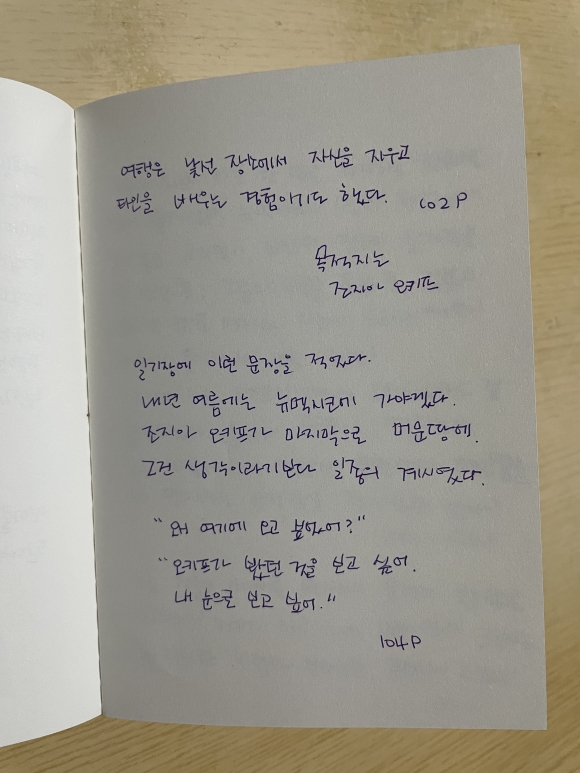 여행은 낯선 장소에서 자신을 지우고
타인을 배우는 경험이기도 했다. 102P
목적지는
조지아 오키프
일기장에 이런 문장을 적었다.
내년 여름에는 뉴멕시코에 가야겠다.
조지아 오키프가 마지막으로 머문 땅에.
그건 생각이라기보다 일종의 계시였다.
"왜 여기에 오고 싶었어?"
"오키프가 봤던 것을 보고 싶어.
내 눈으로 보고 싶어."
104P